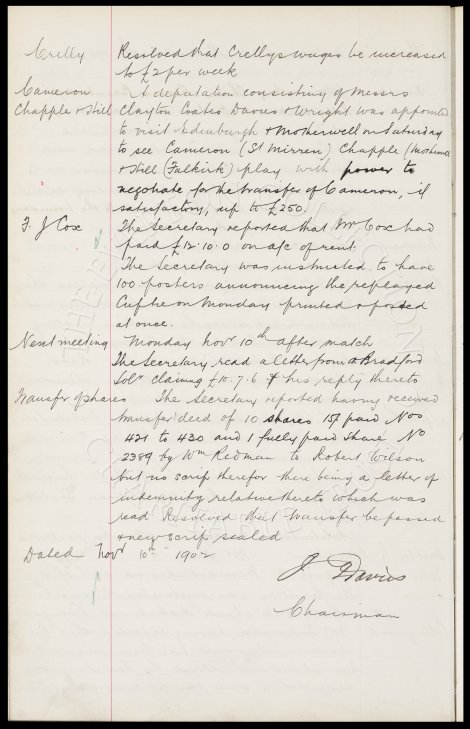 Crelly Resolved that Crellys wages be increased
to £2 per week
Cameron A deputation consisting of Messrs
Chapple & Still Clayton Coates Davies & Wright was appointed
to visit Edinburgh & Motherwell on Saturday
to see Cameron (St Mirren) Chapple (Motherwell
& Still (Falkirk) play with power to
negotiate for the transfer of Cameron, if
satisfactory, up to £250.
F. J Cox The Secretary reported that Mr Cox had
paid £12.10.0 on a/c of rent
The Secretary was instructed to have
100 posters announcing the replayed
Cup tie on Monday printed & posted
at once.
Next meeting Monday Novr 10th after match
The Secretary read a letter from a Bradford
Solr claiming £10.7.6 & his reply thereto
Transfer of shares The Secretary reported having received
transfer deed of 10 shares 15/- paid Nos
421 to 430 and 1 fully paid Share No
2389 by Wm Redman to Robert Wilson
but no scrip therefor there being a letter of
indemnity relative thereto which was
read Resolved that transfer be passed
& new scrip sealed
Dated Novr 10th 1902
J Davies
Chairman